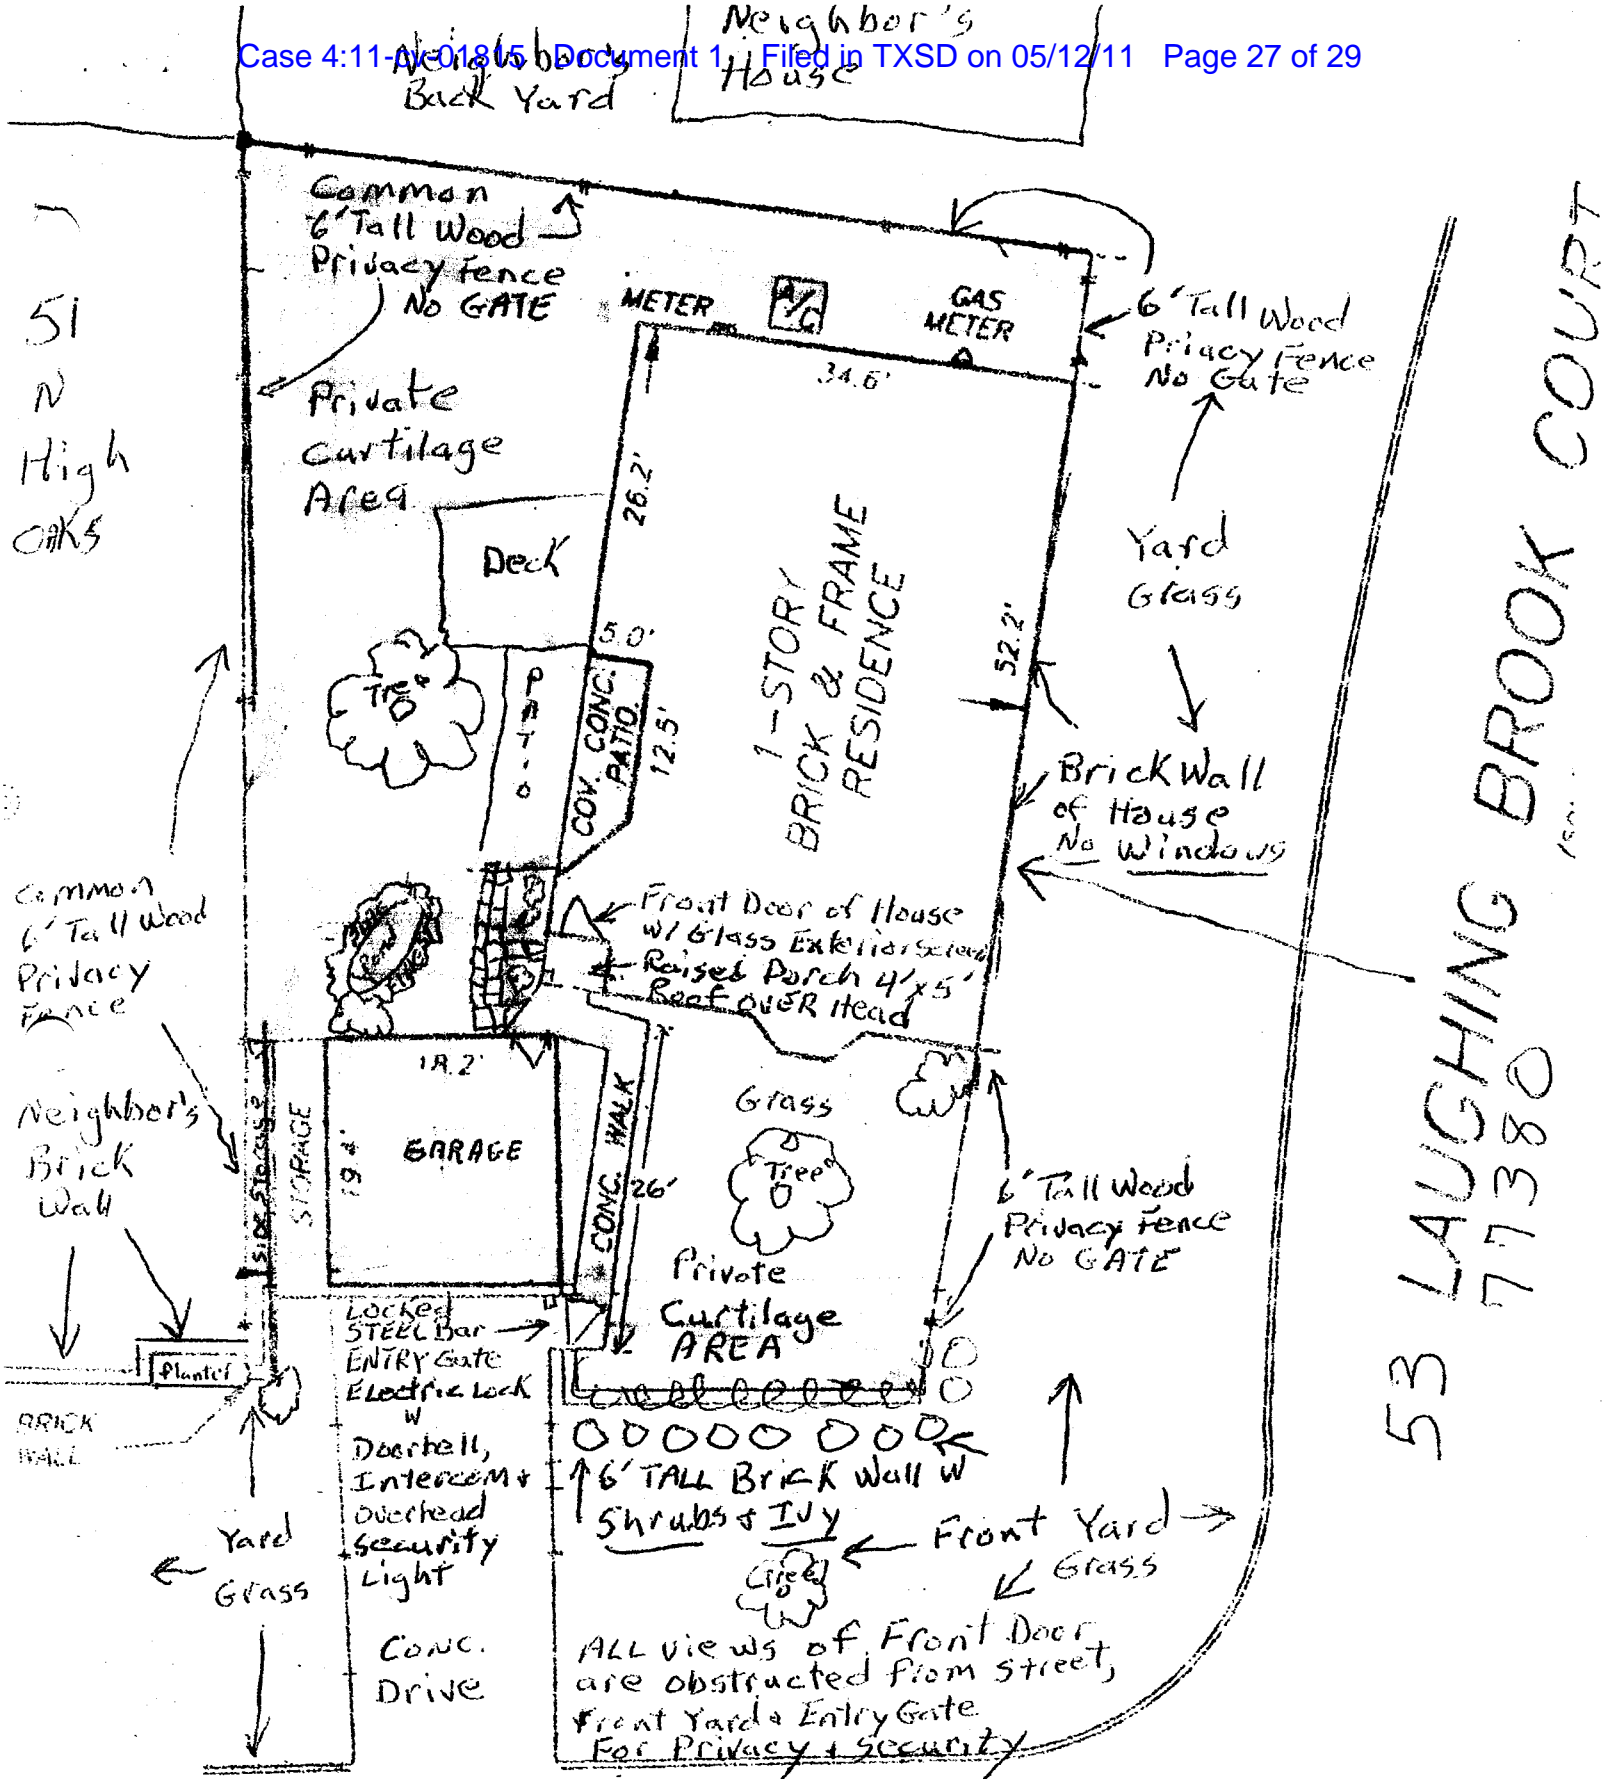 Neighbor's
House
Case 4:11-cv-01815 Document 1 Filed in TXSD on 05/12/11 Page 27 of 29
Neighbor's
Back Yard
Common
6' Tall Wood
Privacy Fence
No GATE
METER
A/C
GAS
METER
6' Tall Wood
Priacy Fence
No Gate
34.6'
51
N
High
OAKS
Private
Curtilage
Area
26.2'
Deck
Yard
Grass
1-STORY
BRICK & FRAME
RESIDENCE
52.2'
5.0'
Tree
PATIO
COV. CONC.
PATIO
12.5'
Brick Wall
of House
No Windows
53 LAUGHING BROOK COURT
77380
Common
6' Tall Wood
Privacy
Fence
Front Door of House
w/ Glass Exterior Screen
Raised Porch 4'x5'
Roof OVER Head
Neighbor's
Brick
Wall
SIDE STORAGE
STORAGE
19.4'
GARAGE
CONC. WALK
26'
Grass
Tree
6' Tall Wood
Privacy Fence
No GATE
Private
Curtilage
AREA
Planter
BRICK
WALL
Locked
STEEL Bar
ENTRY Gate
Electric Lock
W
Doorbell,
Intercom &
Overhead
Security
Light
6' TALL Brick Wall W
Shrubs & Ivy
Front Yard
Grass
Yard
Grass
Conc.
Drive
ALL views of Front Door
are obstructed from street,
Front Yard & Entry Gate
For Privacy & Security